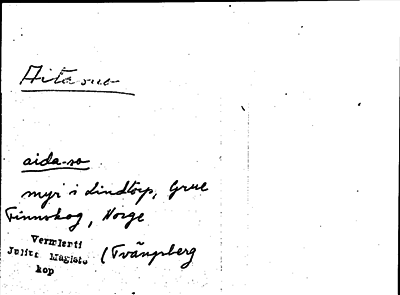 Aitasuo
aida-so
myr i Lindtorp, Grue
Finnskog, Norge
Vermlanti
Julius Mägiste
kop
(Tvängsberg